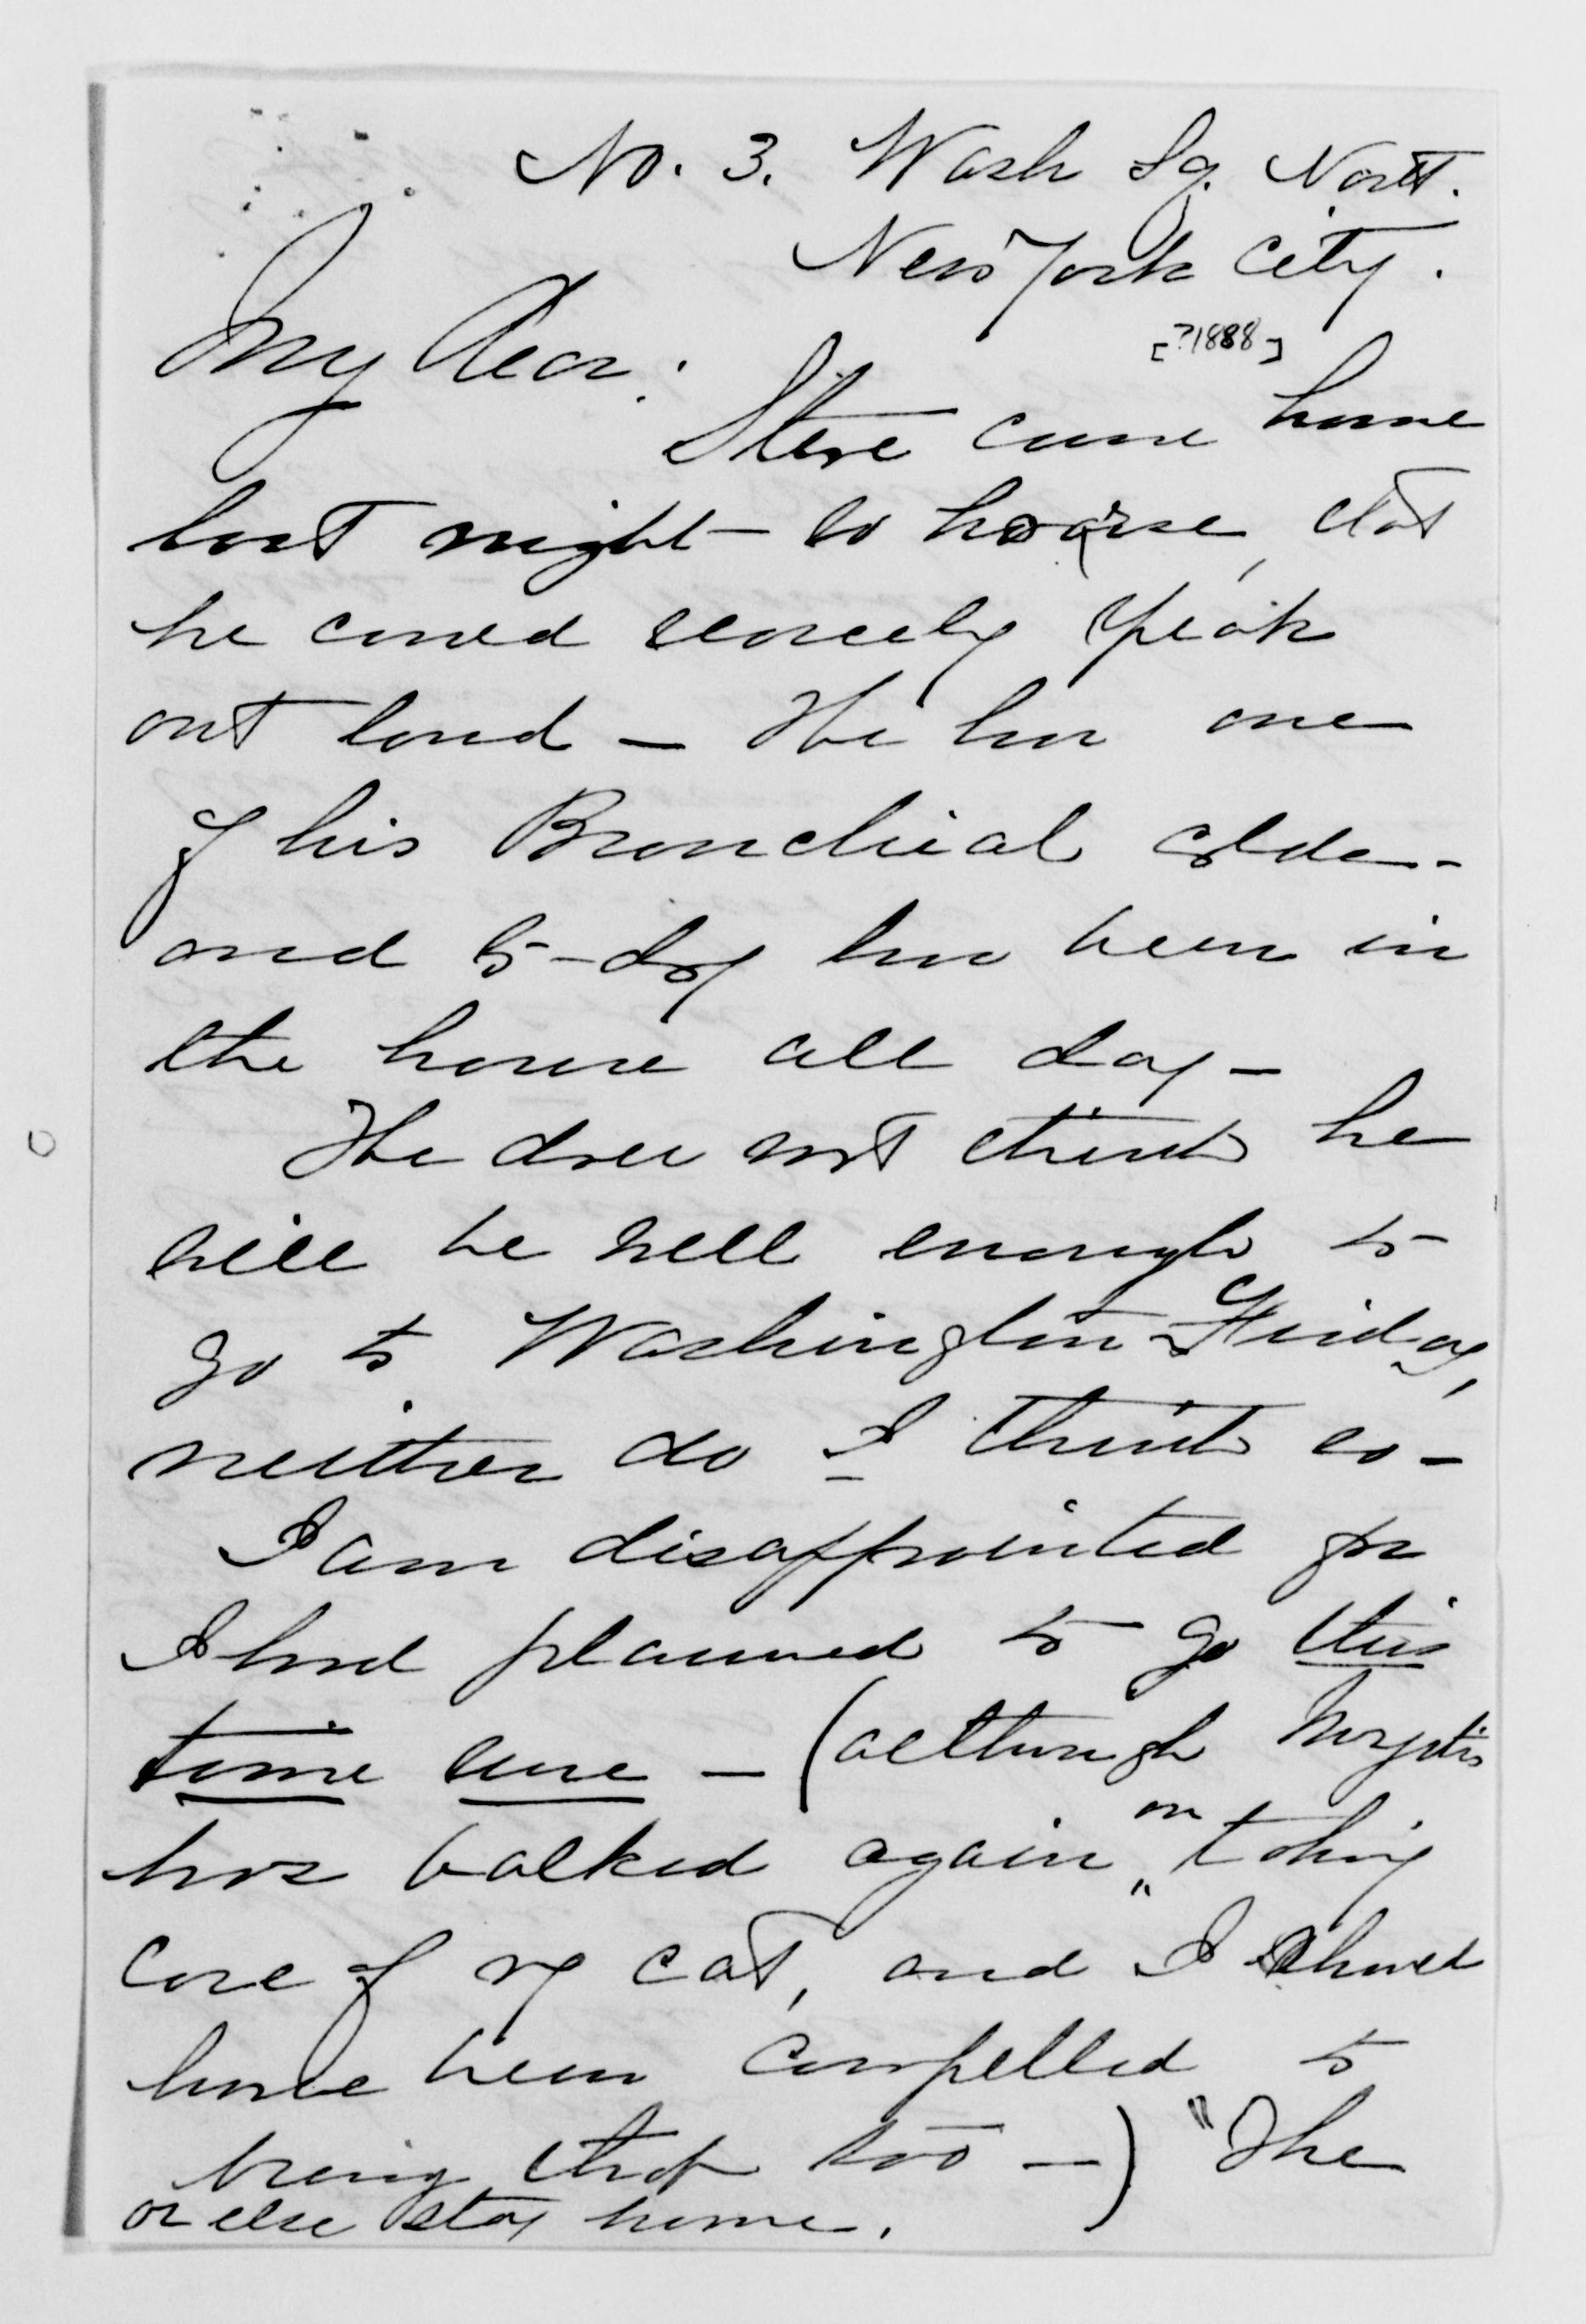 No. 3. Wash Sq. North.
New York City.
[?1888]
My Dear:
Steve came home
last night - so hoarse, that
he could scarcely speak
out loud - He has one
of his Bronchial colds -
and to-day has been in
the house all day -
He does not think he
will be well enough to
go to Washington Friday,
neither do I think so -
I am disappointed for
I had planned to go this
time sure - (although
has balked again on taking
care of my cat, and I should
have been compelled to
bring that too -) "The
or else stay home.